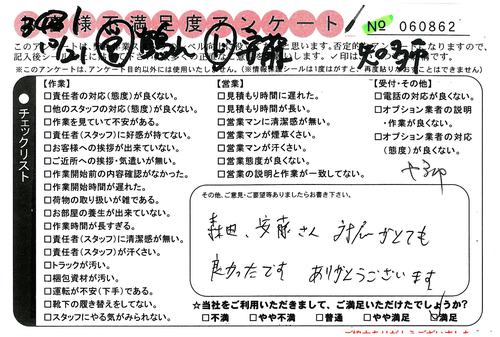 様不満足度アンケート
No 060862
※このアンケートは、アンケート目的以外には使用いたしません。(※情報保護シールは1度はがすと、再度貼りなおすことはできません)
チェックリスト
【作業】
□責任者の対応(態度)が良くない。
□他のスタッフの対応(態度)が良くない。
□作業を見ていて不安がある。
□責任者(スタッフ)に好感が持てない。
□お客様への挨拶が出来ていない。
□ご近所への挨拶・気遣いが無い。
□作業開始前の内容確認がなかった。
□作業開始時間が遅れた。
□荷物の取り扱いが雑である。
□お部屋の養生が出来ていない。
□作業時間が長すぎる。
□責任者(スタッフ)に清潔感が無い。
□責任者(スタッフ)が汗くさい。
□トラックが汚い。
□梱包資材が汚い。
□運転が不安(下手)である。
□靴下の履き替えをしてない。
□スタッフにやる気がみられない。
【営業】
□見積もり時間に遅れた。
□見積もり時間が長い。
□営業マンに清潔感が無い。
□営業マンが煙草くさい。
□営業マンが汗くさい。
□営業態度が良くない。
□営業の説明と作業が一致してない。
【受付・その他】
□電話の対応が良くない。
□オプション業者の説明
・作業が良くない。
□オプション業者の対応
(態度)が良くない。
その他、ご意見・ご要望等ありましたらお書き下さい。
森田、安藤さん みなさんがとても
良かったです ありがとうございます
★当社をご利用いただきまして、ご満足いただけたでしょうか?
□不満 □やや不満 □普通 □やや満足 □満足